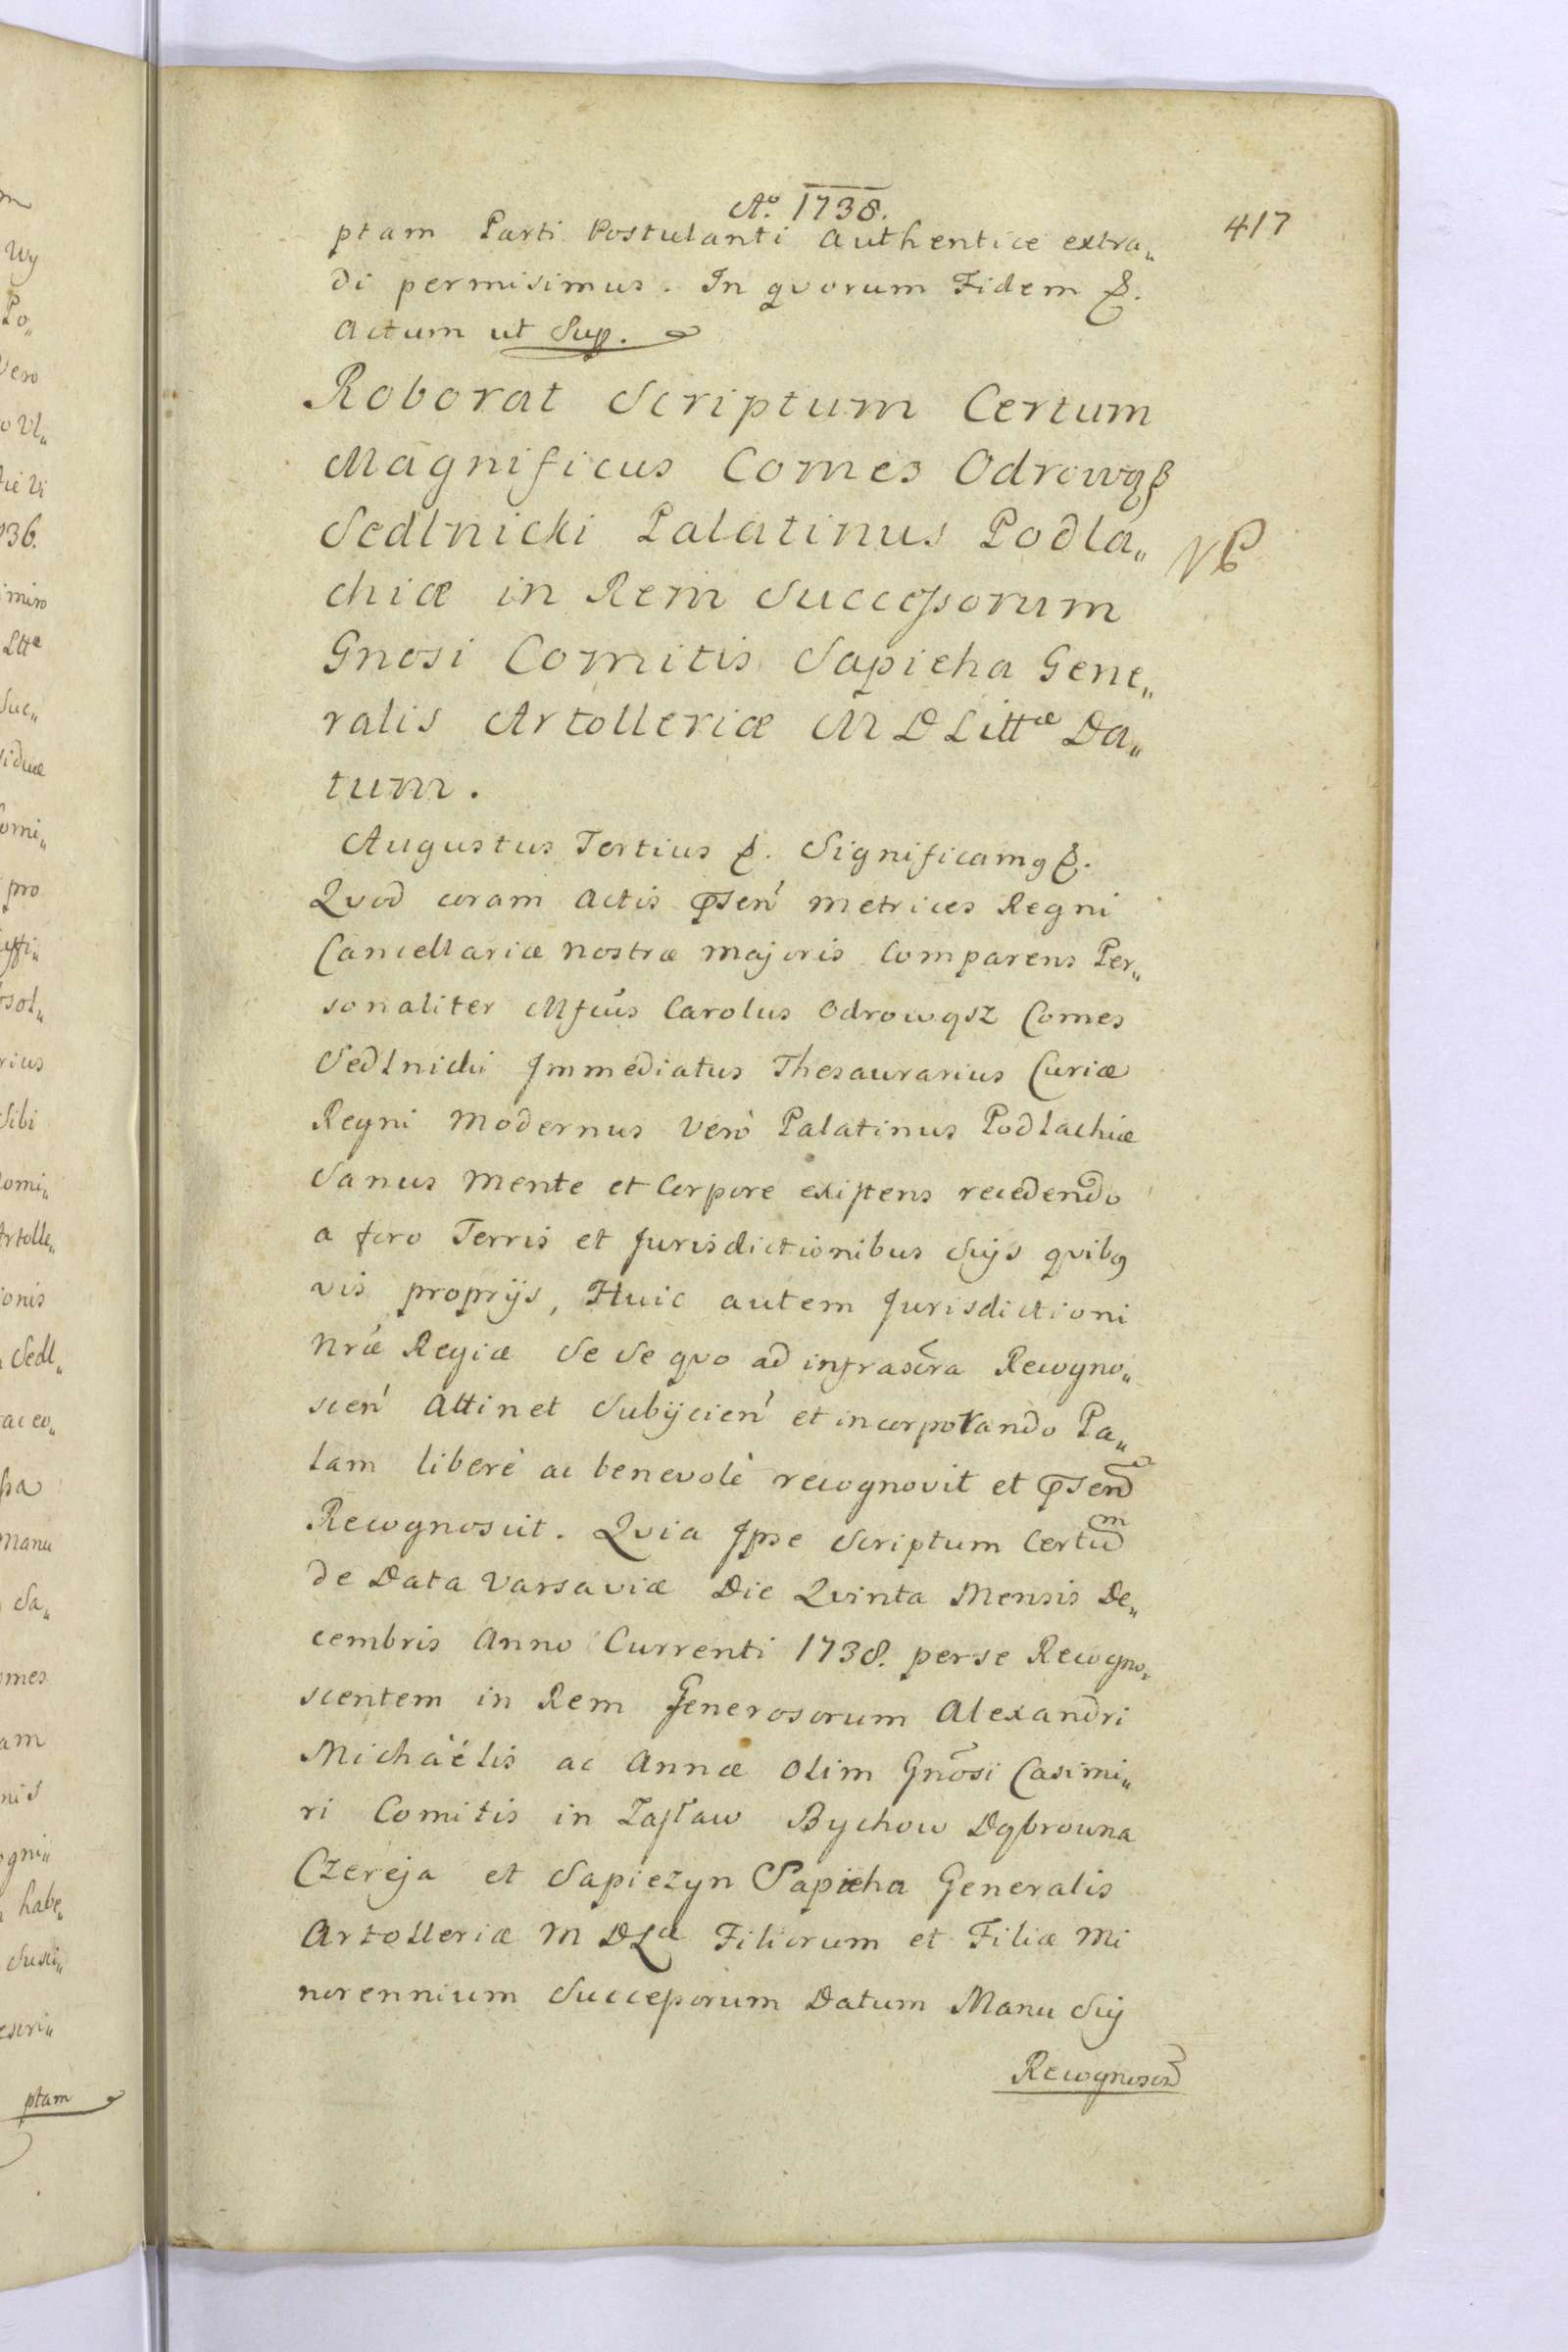 Aº. 1738.
417
ptam Parti Postulanti Authentice extra„
di permisimus. In qvorum Fidem &.
Actum ut Sup.
Roborat Scriptum Certum
Magnificus Comes Odrowąß
Sedlnicki Palatinus Podla„
chiæ in Rem Successorum
Gnosi Comitis Sapieha Gene„
ralis Artolleriæ M D Littæ Da„
tum.
Augustus Tertius &. Significamq &.
Qvod coram Actis Psen̄ Metrices Regni
Cancellariæ Nostræ Majoris Comparens Per„
sonaliter Mfcus Carolus Odrowąsz Comes
Sedlnicki Immediatus Thesaurarius Curiæ
Regni Modernus Verò Palatinus Podlachiæ
Sanus Mente et Corpore existens recedendo
a foro Terris et Jurisdictionibus Suys qvibq
vis proprijs, Huic autem Jurisdictioni
Nræ Regiæ Se Se qvo ad infrascra Recogno„
scen̄ Attinet Subijcien̄ et incorporando Pa„
lam liberè ac benevolè recognovit et Psend
Recognoscit. Qvia Ipse Scriptum Certum
de Data Varsaviæ Die Qvinta Mensis De„
cembris Anno Currenti 1738. per se Recogno„
scentem in Rem Generosorum Alexandri
Michaëlis ac Annæ Olim Gnosi Casimi„
ri Comitis in Zasław Bychow Dąbrowna
Czereja et Sapiezyn Sapieha Generalis
Artolleriæ M D Læ Filiorum et Filiæ Mi
norennium Successorum Datum Manu Sui
Recognoscen̄